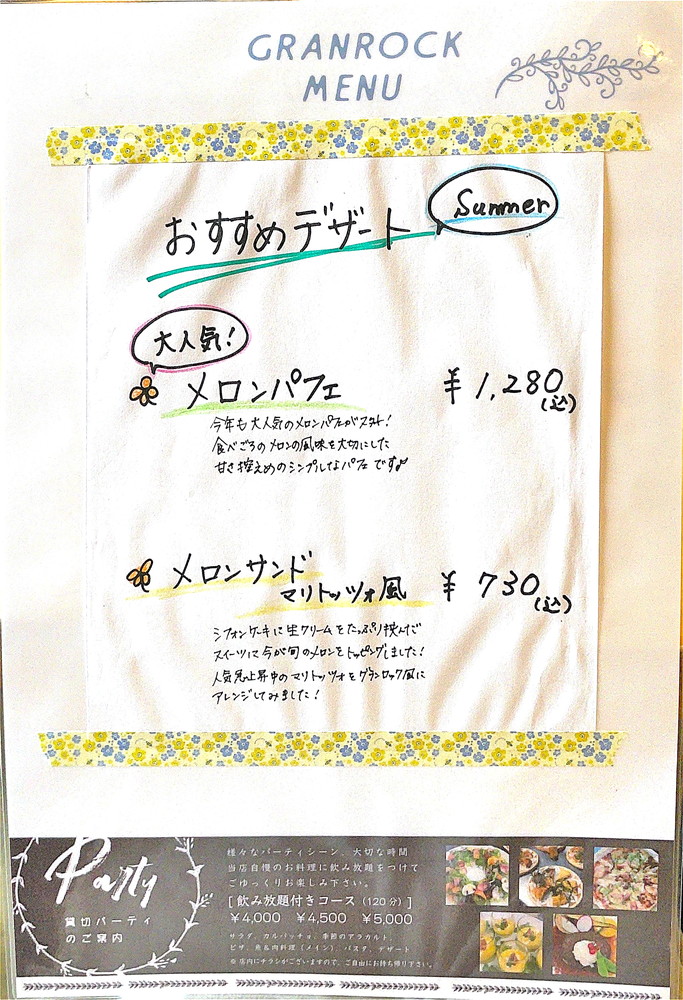 GRANROCK
MENU
おすすめデザート
Summer
大人気!
メロンパフェ ¥1,280(込)
今年も大人気のメロンパフェがスタート!
食べごろのメロンの風味を大切にした
甘さ控えめのシンプルなパフェです♪
メロンサンド
マリトッツォ風 ¥730(込)
シフォンケーキに生クリームをたっぷり挟んだ
スイーツに今が旬のメロンをトッピングしました!
人気急上昇中のマリトッツォをグランロック風に
アレンジしてみました!
Party
貸切パーティ
のご案内
様々なパーティシーン、大切な時間
当店自慢のお料理に飲み放題をつけて
ごゆっくりお楽しみ下さい。
[飲み放題付きコース(120分)]
¥4,000 ¥4,500 ¥5,000
サラダ、カルパッチョ、季節のアラカルト、
ピザ、魚&肉料理(メイン)、パスタ、デザート
※店内にチラシがございますので、ご自由にお持ち帰り下さい。